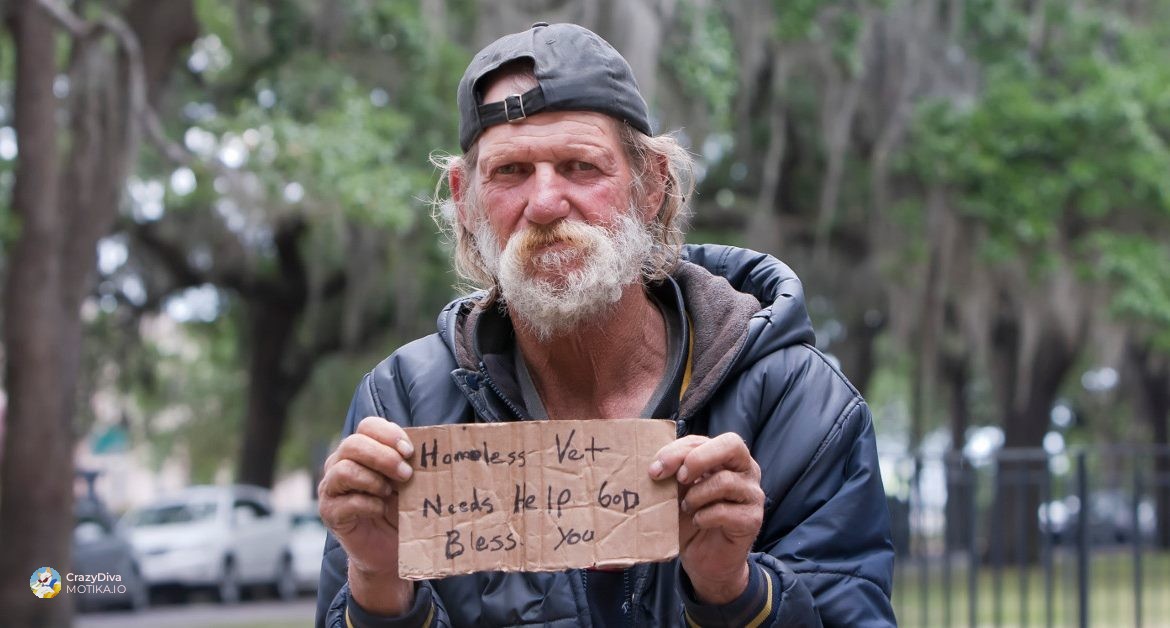 Homeless Vet
Needs Help GoD
Bless You
CrazyDiva
MOTIKA.IO